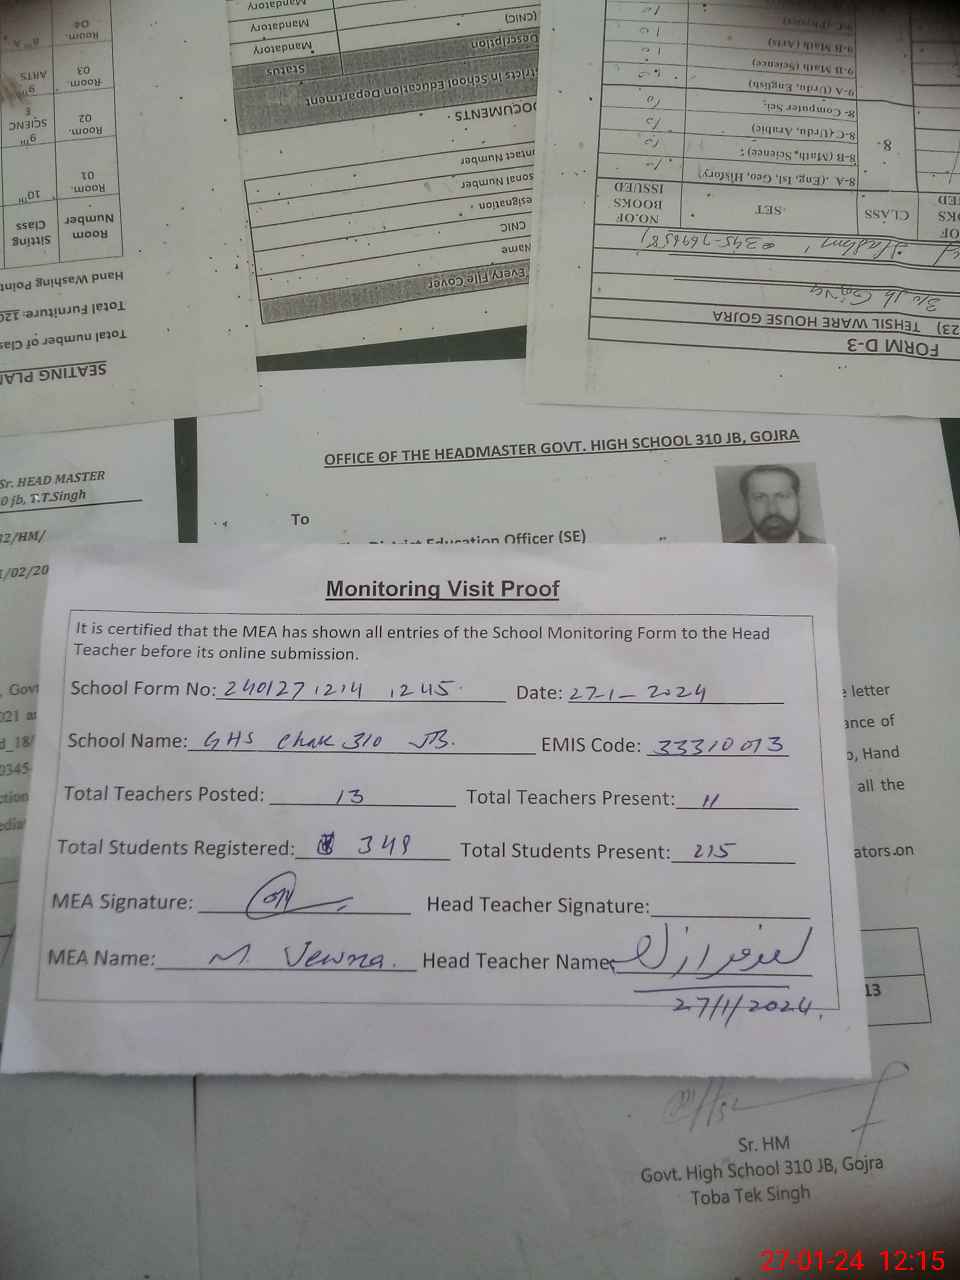 SEATING PLAN
Total number of Clas
Total Furniture: 120
Hand Washing Point
Room Number
Sitting Class
Room. 01
10TH
Room. 02
9TH SCIENC E
Room. 03
9TH ARTS
Room. 04
8TH A
Every File Cover
Name
CNIC
esignation
sonal Number
ntact Number
OCUMENTS
stricts in School Education Department
Description
Status
(CNIC)
Mandatory
Mandatory
Mandatory
FORM D-3
23) TEHSIL WARE HOUSE GOJRA
310 Jb Gojra
0345-7696581
CLASS
SET
NO.OF BOOKS ISSUED
8.
8-A .(Eng, Isl, Geo, History)
8-B (Math, Science)
8-C (Urdu, Arabic)
8- Computer Sci.
9-A (Urdu, English)
9-B Math (Science)
9-B Math (Arts)
9-C (Physics)
Sr. HEAD MASTER
0 jb, T.T.Singh
/HM/
/02/20
OFFICE OF THE HEADMASTER GOVT. HIGH SCHOOL 310 JB, GOJRA
To
District Education Officer (SE)
Monitoring Visit Proof
It is certified that the MEA has shown all entries of the School Monitoring Form to the Head
Teacher before its online submission.
School Form No: 240127 1214 1245 Date: 27-1-2024
School Name: GHS Chak 310 JB. EMIS Code: 33310073
Total Teachers Posted: 13 Total Teachers Present: 11
Total Students Registered: 349 Total Students Present: 215
MEA Signature: Head Teacher Signature:
MEA Name: M. Head Teacher Name:
27/1/2024.
e letter
ance of
o, Hand
all the
ators on
, Govt
021 a
d_18/
0345-
ction
edia
13
Sr. HM
Govt. High School 310 JB, Gojra
Toba Tek Singh
27-01-24 12:15